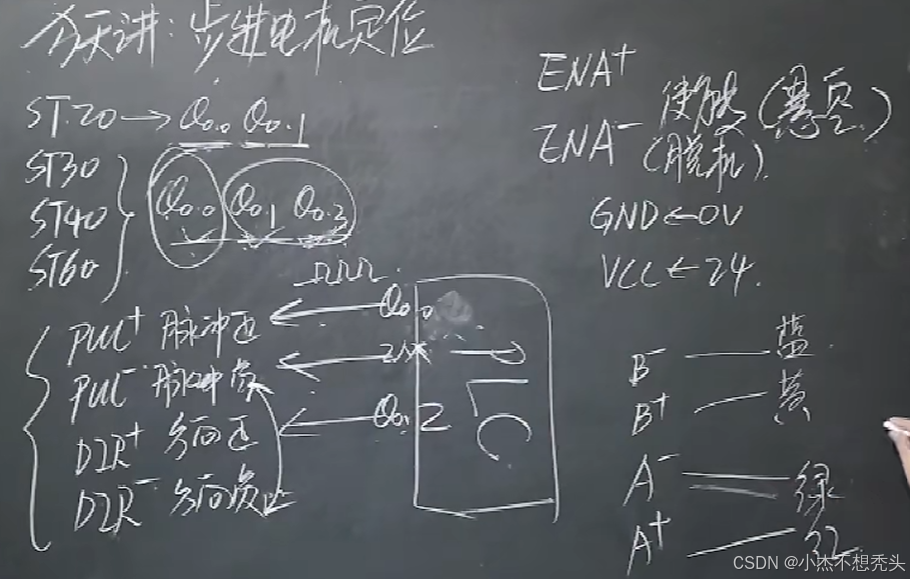 今天讲:步进电机定位
ST20→Q0.0 Q0.1
ST30
ST40
ST60
Q0.0 Q0.1 Q0.3
PUL+ 脉冲正
PUL- 脉冲负
DIR+ 方向正
DIR- 方向负
Q0.0
Q0.2
PLC
ENA+
ENA- 使能(悬空)
(脱机)
GND←0V
VCC←24
B- 蓝
B+ 黄
A- 绿
A+ 红
CSDN @小杰不想秃头